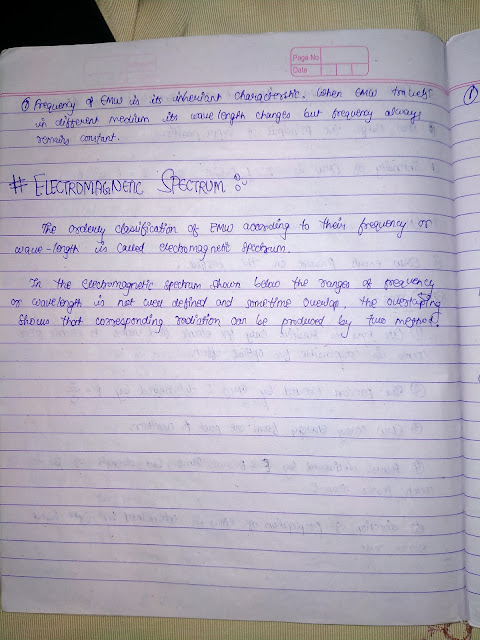 Page No
Date
Frequency of EMW is its inherient characterstic. When EMW travels
in different medium its wave length changes but frequency always
remains constant.
# ELECTROMAGNETIC SPECTRUM :
The orderly classification of EMW according to their frequency or
wave-length is called electromagnetic spectrum.
In the electromagnetic spectrum shown below the ranges of frequency
or wavelength is not well defined and sometime overlap. The overlapping
shows that corresponding radiation can be produced by two method.